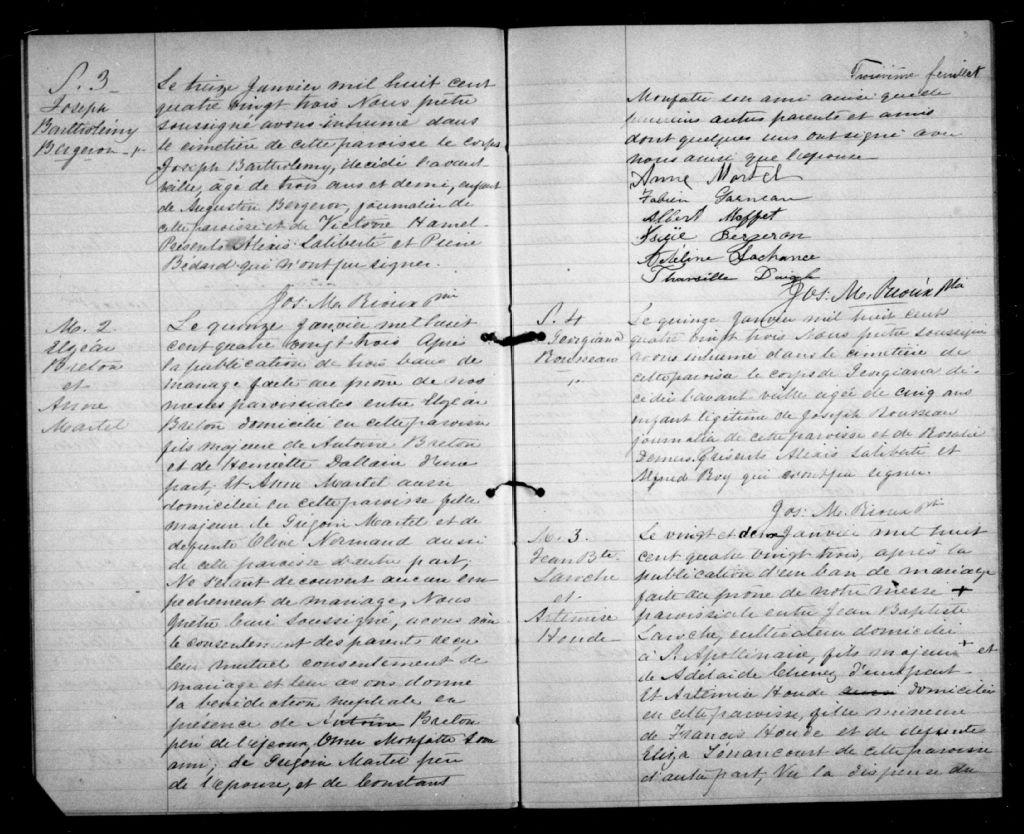 S. 3
Joseph
Barthelémy
Bergeron
Le treize Janvier mil huit cent
quatre vingt trois Nous prêtre
soussigné avons inhumé dans
le cimetière de cette paroisse le corps
Joseph Barthelemy, décédé l'avant
veille, agé de trois ans et demi, enfant
de Augustin Bergeron, journalier de
cette paroisse et de Victoire Hamel.
Présents Alexis Laliberté et Pierre
Bédard qui n'ont pu signer.
Jos. M. Rioux ptre
M. 2
Elzéar
Breton
et
Anne
Martel
Le quinze Janvier mil huit
cent quatre vingt trois Après
la publication de trois bans de
mariage faite au prone de nos
messes paroissiales entre Elzéar
Breton domicilié en cette paroisse
fils majeur de Antoine Breton
et de Henriette Dallaire d'une
part; Et Anne Martel aussi
domiciliée en cette paroisse fille
majeure de Grégoire Martel et de
défunte Olive Normand aussi
de cette paroisse d'autre part;
Ne s'étant découvert aucun em
pechement de mariage, Nous
prêtre curé soussigné, avons avec
le consentement des parents reçu
leur mutuel consentement de
mariage et leur avons donné
la bénédiction nuptiale en
présence de Antoine Breton
père de l'époux, Omer Monfatte son
ami; de Grégoire Martel père
de l'Epouse, et de Constant
Troisième feuillet
Monfatte son ami ainsi que de
plusieurs autres parents et amis
dont quelques uns ont signé avec
nous ainsi que l'épouse
Anne Martel
Fabien Garneau
Albert Moffet
Bergeron
Adéline Lachance
Tharsille Daigle
Jos. M. Rioux ptre
S. 4
Georgiana
Rousseau
Le quinze Janvier mil huit cent
quatre vingt trois Nous prêtre soussigné
avons inhumé dans le cimetière de
cette paroisse le corps de Georgiana dé
cédée l'avant veille agée de cinq ans
enfant légitime de Joseph Rousseau
journalier de cette paroisse et de Rosalie
Demers. Présents Alexis Laliberté et
Alfred Roy qui n'ont pu signer.
Jos. M. Rioux ptre
M. 3.
Jean Bte
Laroche
et
Artémise
Houde
Le vingt et deux Janvier mil huit
cent quatre vingt trois, après la
publication d'un ban de mariage
faite au prone de notre messe +
paroissiale entre Jean Baptiste
Laroche, cultivateur domicilié
à St Apollinaire, fils majeur + et
de Adélaide d'une part
Et Artémise Houde aussi domiciliée
en cette paroisse, fille mineure
de Francis Houde et de défunte
Eliza de cette paroisse
d'autre part, Vu la dispense du